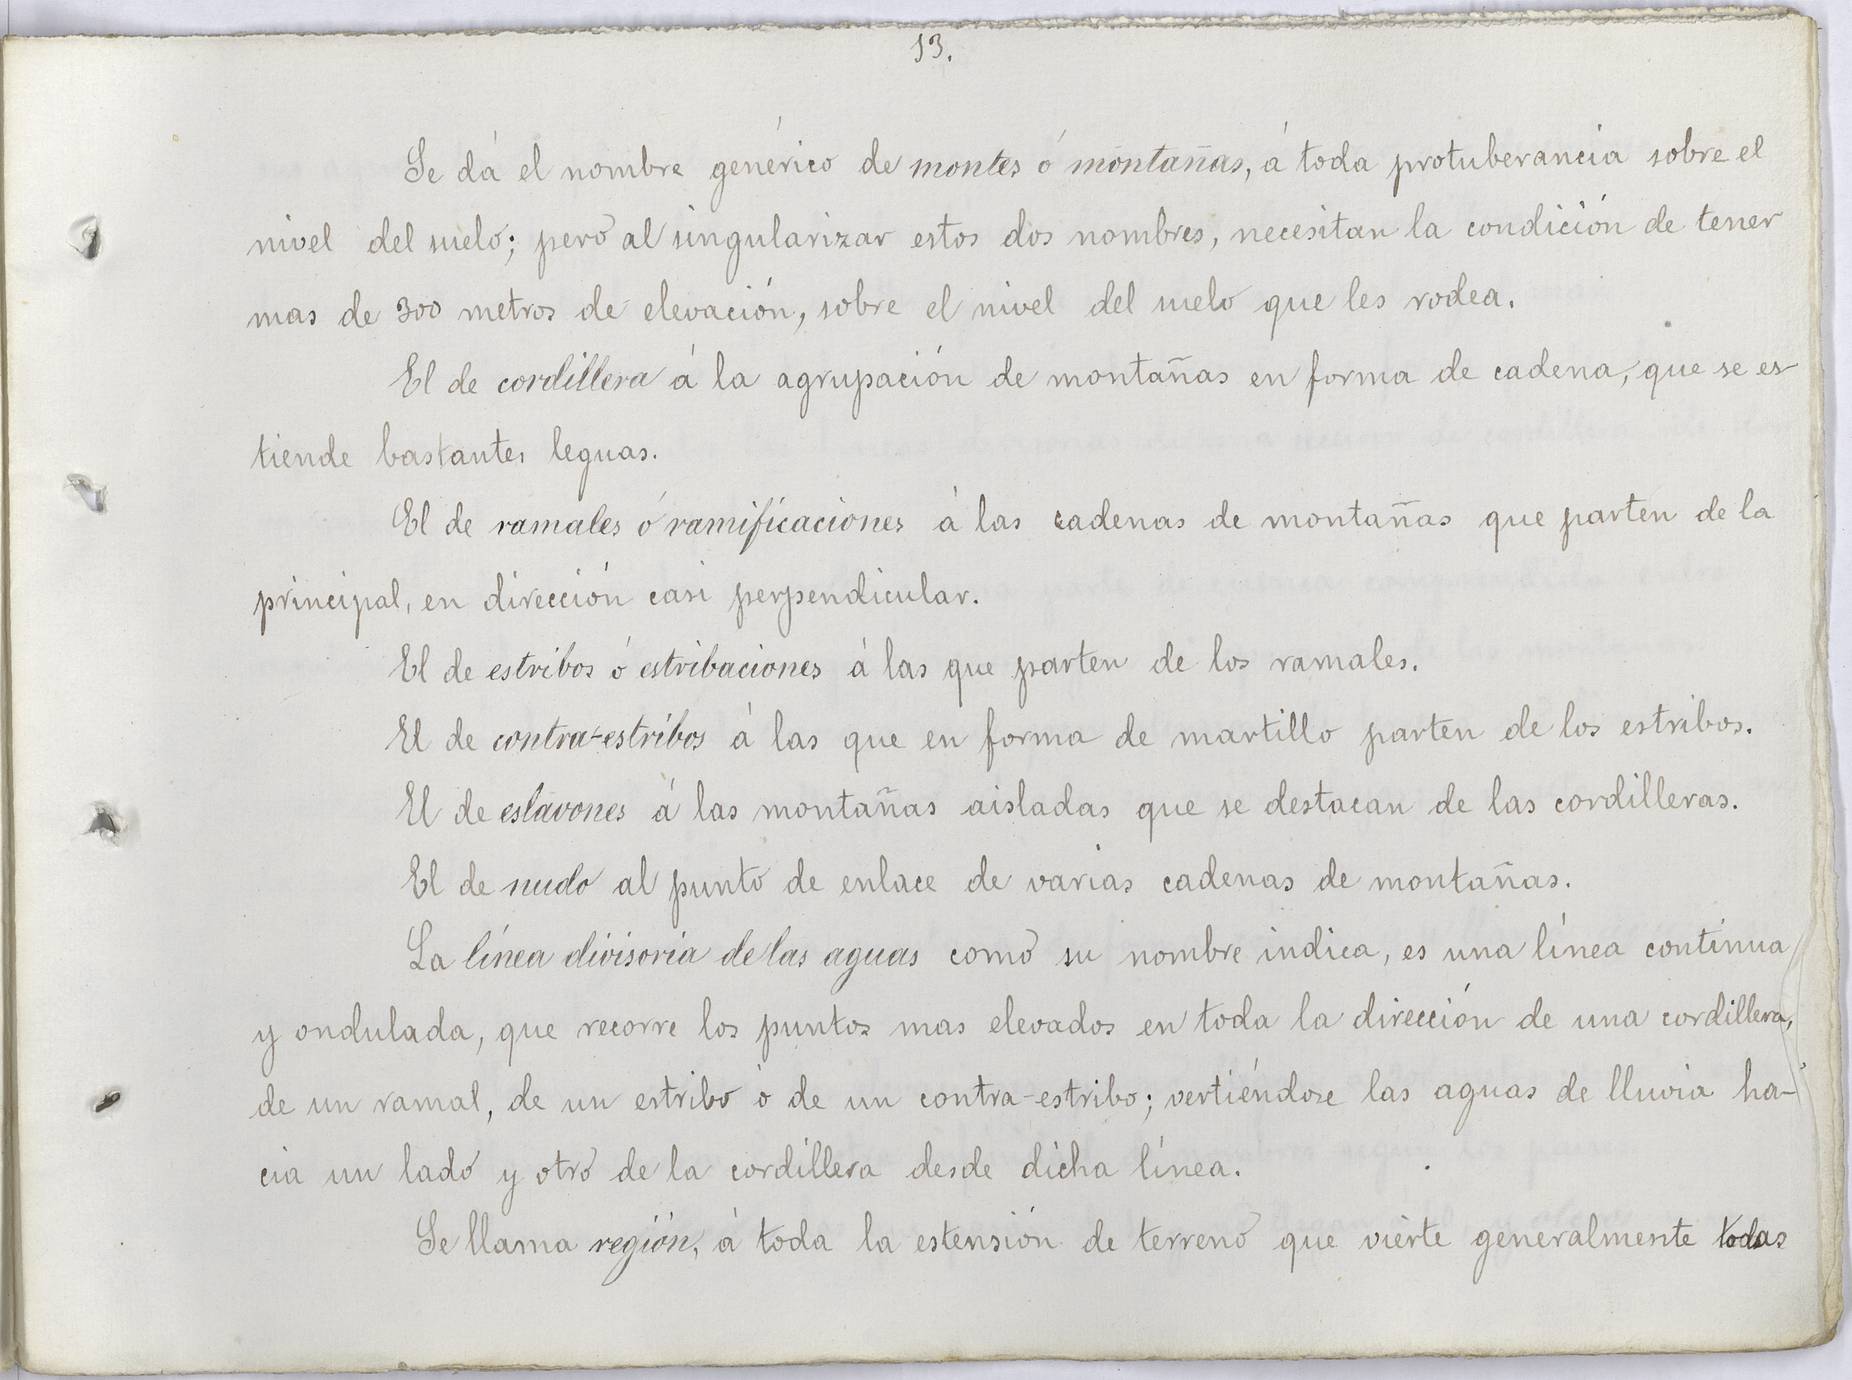 13.
Se dá el nombre genérico de montes ó montañas, á toda protuberancia sobre el
nivel del suelo; pero al singularizar estos dos nombres, necesitan la condición de tener
mas de 300 metros de elevación, sobre el nivel del suelo que les rodea.
El de cordillera á la agrupación de montañas en forma de cadena, que se es-
tiende bastantes leguas.
El de ramales ó ramificaciones á las cadenas de montañas que parten de la
principal, en dirección casi perpendicular.
El de estribos ó estribaciones á las que parten de los ramales.
El de contra-estribos á las que en forma de martillo parten de los estribos.
El de eslavones á las montañas aisladas que se destacan de las cordilleras.
El de nudo al punto de enlace de varias cadenas de montañas.
La línea divisoria de las aguas como su nombre indica, es una línea continua
y ondulada, que recorre los puntos mas elevados en toda la dirección de una cordillera,
de un ramal, de un estribo ó de un contra-estribo; vertiéndose las aguas de lluvia ha-
cia un lado y otro de la cordillera desde dicha línea.
Se llama región, á toda la estensión de terreno que vierte generalmente todas